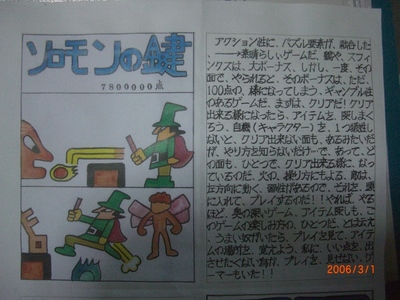 ソロモンの鍵
7800000点
アクション性に、パズル要素が、融合した
素晴らしいゲームだ。鍵や、スフィ
ンクスは、大ボーナス、しかし、一度、その
面で、やられると、そのボーナスは、ただ
100点の、様になってしまう。ギャンブル性
のあるゲームだ、まずは、クリアだ！クリア
出来る様になったら、アイテムを、探しまく
ろう、自機（キャラクター）を、1つ犠牲し
ないと、クリア出来ない面も、あるみたいだ
が、やり方を知らないだけーで、あって、ど
の面も、ひとつで、クリア出来る様に、なっ
ているのだ、火の、操り方にもよる、敵は、
左方向に動く、個性があるので、それを、頭
に入れて、プレイするのだ！！やれば、やる
ほど、奥の深いゲーム、アイテム探しも、こ
のゲームの楽しみ方の、ひとつだ、とはいえ、
うまい奴がいたら、プレイを見て、アイテ
ムの場所を、覚えよう、私に、いい点を、出
させたくない為か、プレイを、見せない、ゲ
ーマーもいた！！
2006/3/1